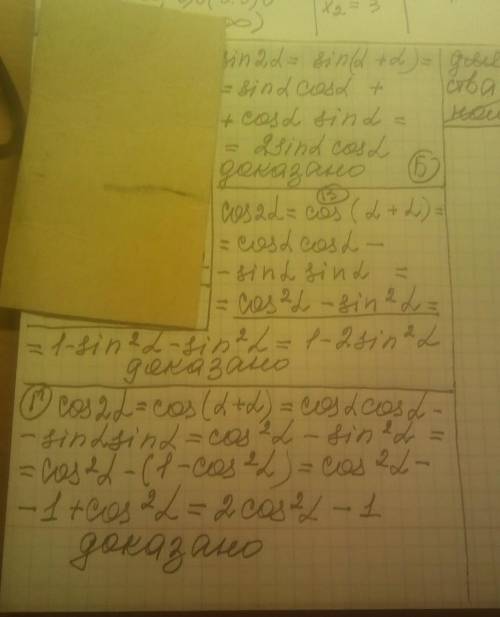 x₂ = 3
∞)
sin2α = sin(α + α) =
= sinα cosα +
+ cosα sinα =
= 2sinα cosα
доказано Б
В
cos2α = cos(α + α) =
= cosα cosα –
– sinα sinα =
= cos²α – sin²α =
= 1 – sin²α – sin²α = 1 – 2sin²α
доказано
Г cos2α = cos(α+α) = cosα cosα –
– sinα sinα = cos²α – sin²α =
= cos²α – (1 – cos²α) = cos²α –
– 1 + cos²α = 2cos²α – 1
доказано
ства